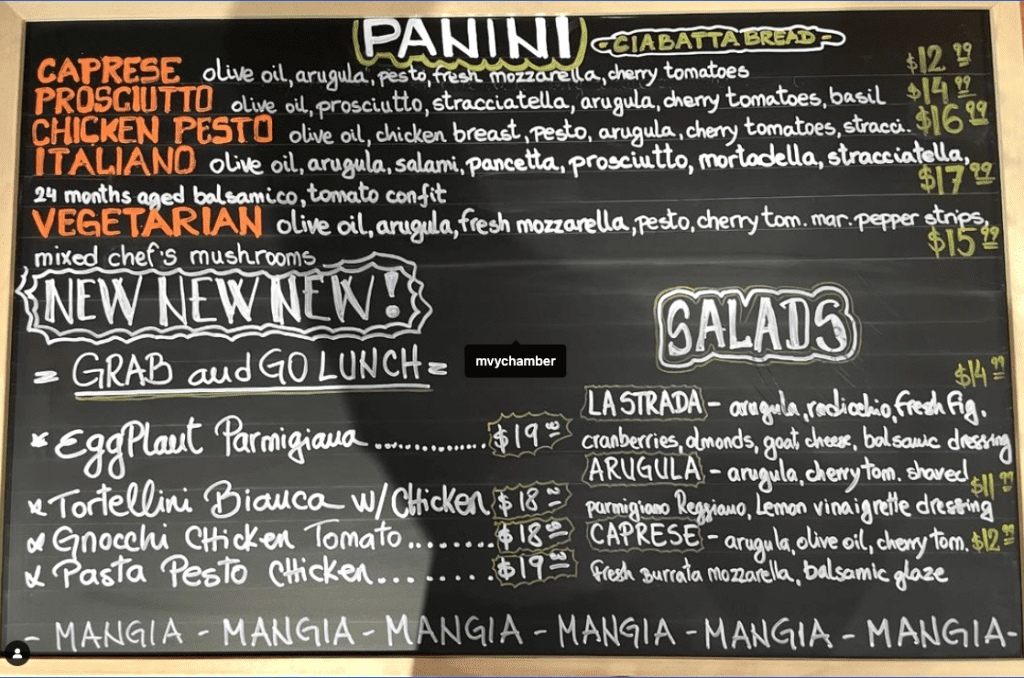 PANINI -CIABATTA BREAD-
CAPRESE olive oil, arugula, pesto, fresh mozzarella, cherry tomatoes $12.99
PROSCIUTTO olive oil, prosciutto, stracciatella, arugula, cherry tomatoes, basil $14.99
CHICKEN PESTO olive oil, chicken breast, pesto, arugula, cherry tomatoes, stracci. $16.99
ITALIANO olive oil, arugula, salami, pancetta, prosciutto, mortadella, stracciatella,
24 months aged balsamico, tomato confit $17.99
VEGETARIAN olive oil, arugula, fresh mozzarella, pesto, cherry tom. mar. pepper strips,
mixed chef's mushrooms $15.99
NEW NEW NEW!
= GRAB and GO LUNCH =
EggPlant Parmigiana ............ $19
Tortellini Bianca w/CHicken $18
Gnocchi CHicken Tomato ....... $18
Pasta Pesto CHicken ......... $19
mvychamber
SALADS
$14.99
LA STRADA - arugula, radicchio, fresh fig,
cranberries, almonds, goat cheese, balsamic dressing
ARUGULA - arugula, cherry tom. shaved $11.99
parmigiano Reggiano, Lemon vinaigrette dressing
CAPRESE - arugula, olive oil, cherry tom. $12
fresh Burrata mozzarella, balsamic glaze
- MANGIA - MANGIA - MANGIA - MANGIA - MANGIA - MANGIA -